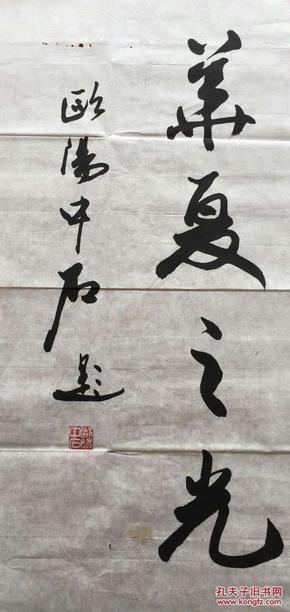 華夏之光
歐陽中石題
孔夫子旧书网